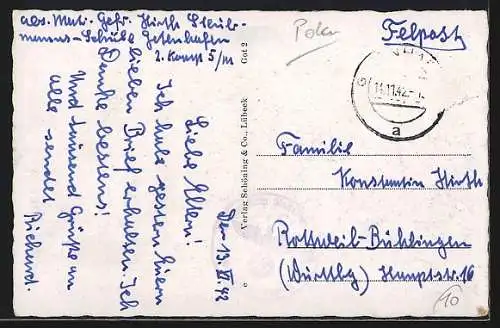 abs. Matr. Gefr. Hirth Steuer-
manns-Schule Gotenhafen
2. Komp 5/III
Den 13. XI. 42
Liebe Eltern!
Ich habe gestern Euern
lieben Brief erhalten. Ich
danke bestens!
Und tausend Grüße an
alle sendet
Richard.
Verlag Schöning & Co., Lübeck Got 2
Polen
Felpost
14.11.42
a
Familie
Konstantin Hirth
Rottweil-Bühlingen
(Württbg) Hauptstr. 16
10